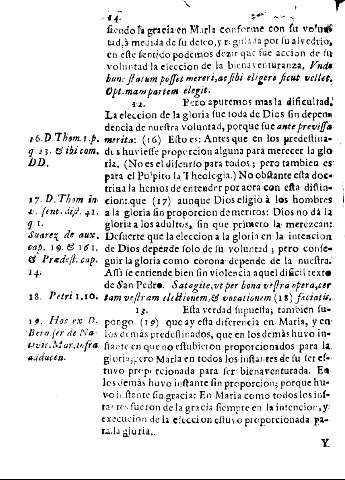 14
siendo la gracia en Maria conforme con su volun-
tad, à medida de su deseo, y regulada por su alvedrio,
en este sentido podemos dezir que fue accion de su
voluntad la eleccion de la bienaventuranza. Vnde
hunc statum posset mereri, ac sibi eligere sicut vellet.
Opt. mam partem elegit.
12. Pero apuremos mas la dificultad.
La eleccion de la gloria fue toda de Dios sin depen-
dencia de nuestra voluntad, porque fue ante prævissa
16. D. Thom. 1. p.
q 23. & ibi com.
DD.
merita: (16) Esto es: Antes que en los predestina-
dos huviesse proporcion alguna para merecer la glo
ria. (No es el discurso para todos; pero tambien es
para el Pulpito la Theologia.) No obstante esta doc-
trina la hemos de entender por aora con esta distin-
17. D. Thom in
1. sent. dist. 41.
q 1.
Suarez de aux.
cap. 19. & 161.
& Prædest. cap.
14.
cion: que (17) aunque Dios eligiò à los hombres
a la gloria sin proporcion de meritos: Dios no dà la
gloria a los adultos, sin que primero la merezcan:
De suerte que la eleccion a la gloria en la intencion
de Dios depende solo de su voluntad; pero conse-
guir la gloria como corona depende de la nuestra.
Assi se entiende bien sin violencia aquel dificil texto
de San Pedro. Satagite, vt per bona vestra opera, cer
18. Petri 1. 10.
tam vestram electionem, & vocationem (18) faciatis.
13. Esta verdad supuesta; tambien su-
19. Hos ex D.
Bern. ser de Na-
tivit. Mar. infra
adducen.
pongo (19) que ay esta diferencia en Maria, y en
los demàs predestinados, que en los demàs huvo in-
stante en que no estubieron proporcionados para la
gloria; pero Maria en todos los instantes de su ser es-
tuvo proporcionada para ser bienaventurada. En
los demàs huvo instante sin proporcion; porque hu-
vo instante sin gracia: En Maria como todos los ins-
tantes fueron de la gracia siempre en la intencion, y
execucion de la eleccion estuvo proporcionada pa-
ra la gloria.
Y